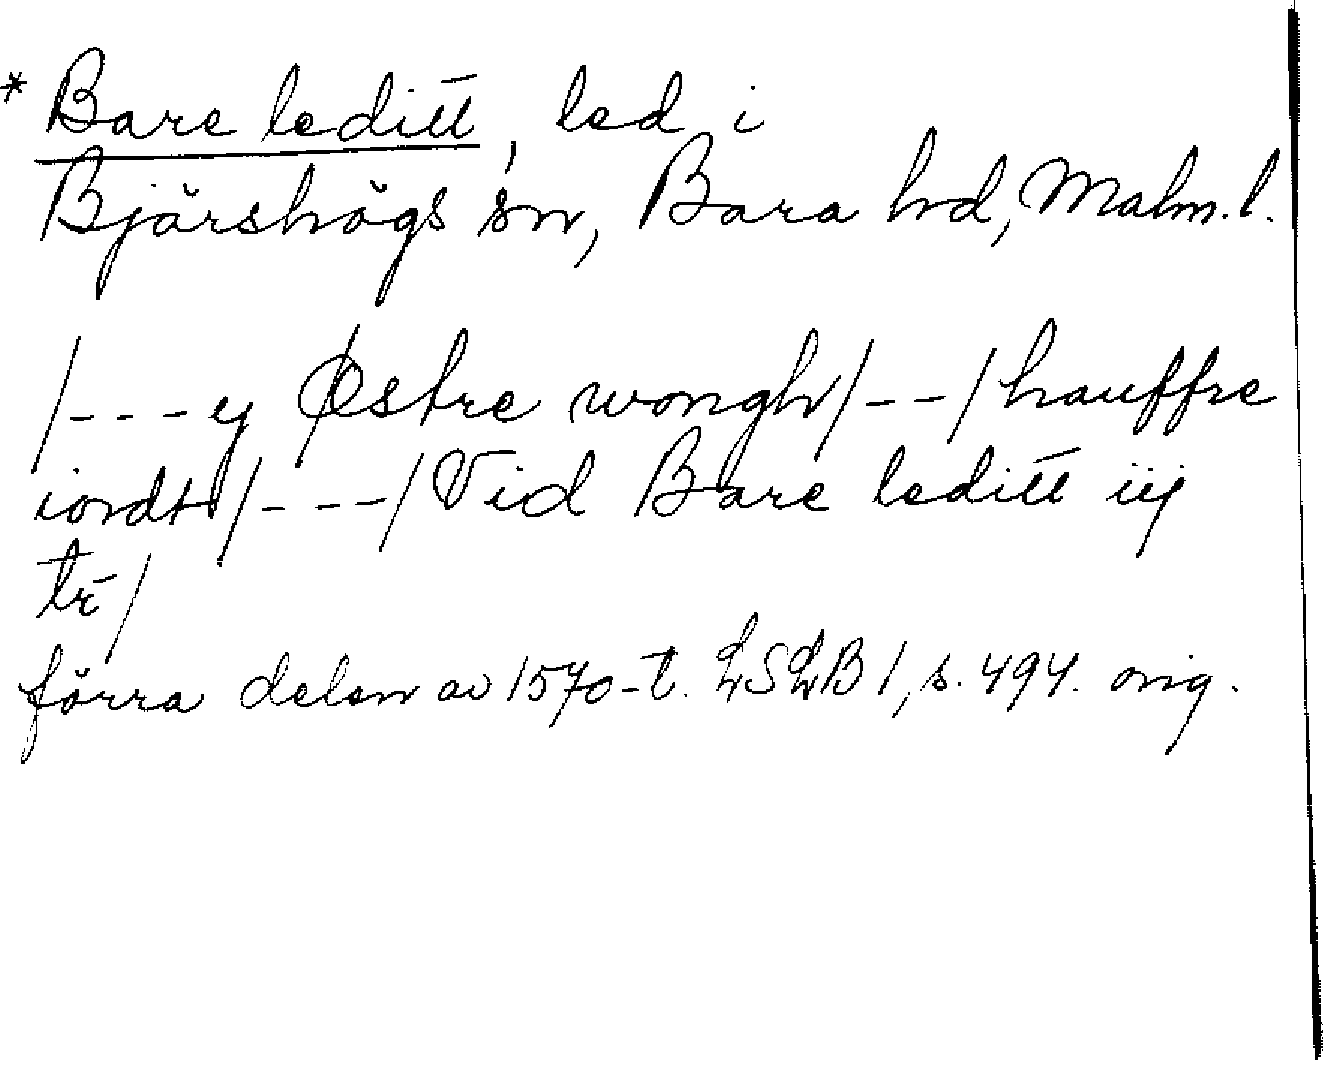 * Bare leditt, led i
Bjärshögs sn, Bara hd, Malm. l.
/---y Østre wongh/--/hauffre
iordt/---/Vid Bare leditt iij
tr̄/
förra delen av 1570-t. LSLB 1, s. 494. orig.